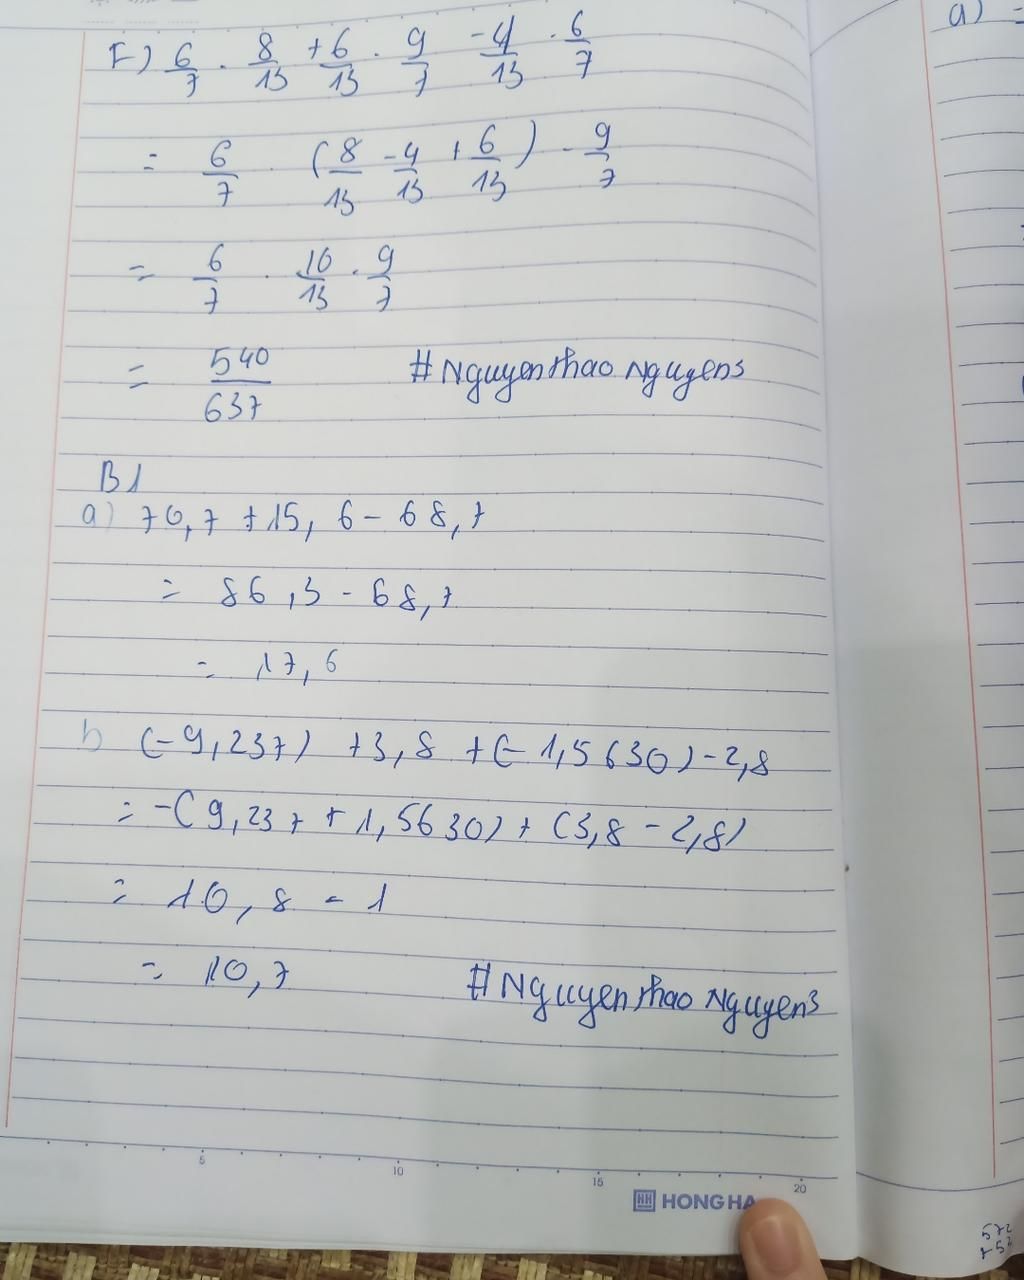 F) 6/7 . 8/13 + 6/13 . 9/7 - 4/13 . 6/7
= 6/7 (8/13 - 4/13 + 6/13) . 9/7
= 6/7 . 10/13 . 9/7
= 540/637 #Nguyenthao Nguyens
B1
a) 70,7 + 15,6 - 68,7
= 86,3 - 68,7
= 17,6
b (-9,237) + 3,8 + (-1,5630) - 2,8
= -(9,237 + 1,5630) + (3,8 - 2,8)
= 10,8 - 1
= 10,7 #Nguyenthao Nguyens
5 10 15 20
HH HONG HA
a) =